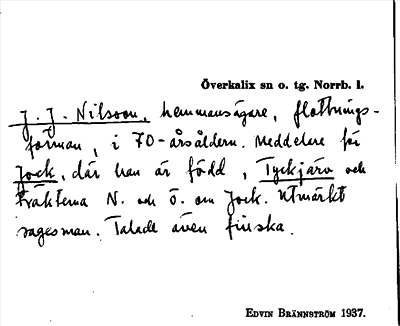 Överkalix sn o. tg. Norrb. l.
J. J. Nilsson, hemmansägare, flottnings-
förman, i 70-årsåldern. Meddelare för
Jock, där han är född, Tyckjärv och
trakterna N. och Ö. om Jock. Utmärkt
sagesman. Talade även finska.
EDVIN BRÄNNSTRÖM 1937.